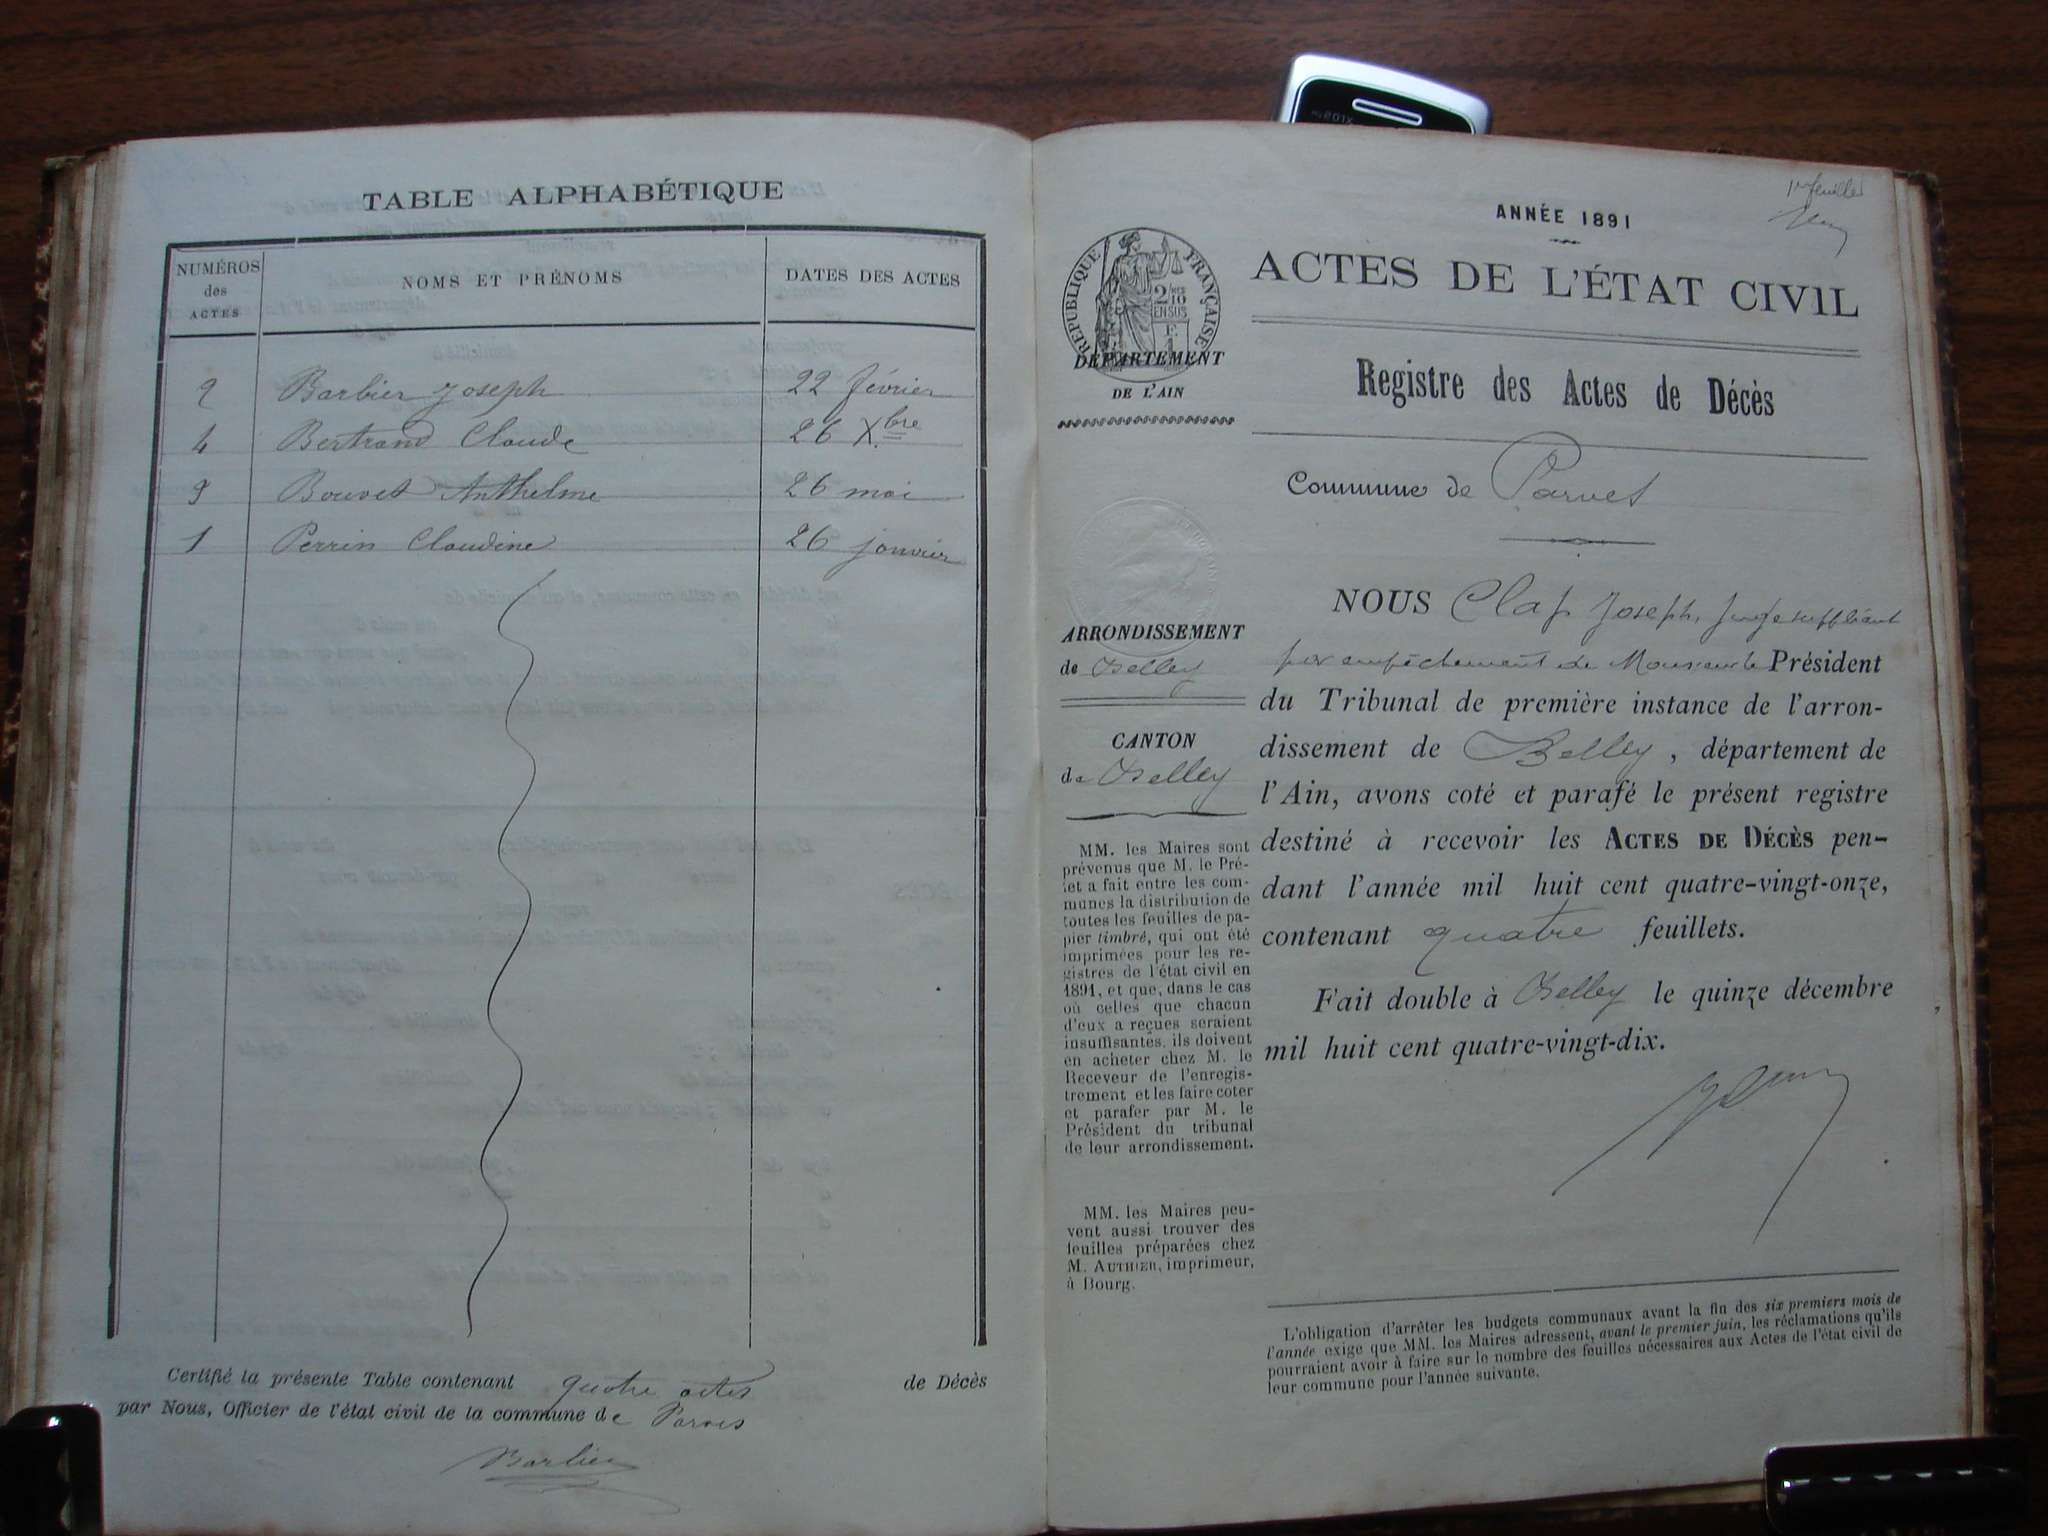 TABLE ALPHABÉTIQUE
NUMÉROS des ACTES
NOMS ET PRÉNOMS
DATES DES ACTES
2 Barbier Joseph 22 février
4 Bertrand Claude 26 Xbre
3 Bouvet Anthelme 26 mai
1 Perrin Claudine 26 janvier
Certifié la présente Table contenant quatre actes de Décès
par Nous, Officier de l'état civil de la commune de Parves
Barbier
1er feuillet
ANNÉE 1891
ACTES DE L'ÉTAT CIVIL
RÉPUBLIQUE FRANÇAISE
2/10 EN SUS
DÉPARTEMENT
DE L'AIN
Registre des Actes de Décès
Commune de Parves
ARRONDISSEMENT
de Belley
CANTON
de Belley
MM. les Maires sont
prévenus que M. le Pré-
fet a fait entre les com-
munes la distribution de
toutes les feuilles de pa-
pier timbré, qui ont été
imprimées pour les re-
gistres de l'état civil en
1891, et que, dans le cas
où celles que chacun
d'eux a reçues seraient
insuffisantes, ils doivent
en acheter chez M. le
Receveur de l'enregis-
trement et les faire coter
et parafer par M. le
Président du tribunal
de leur arrondissement.
MM. les Maires peu-
vent aussi trouver des
feuilles préparées chez
M. AUTHIER, imprimeur,
à Bourg.
NOUS Clap Joseph, Juge suppléant
par empêchement de Monsieur le Président
du Tribunal de première instance de l'arron-
dissement de Belley, département de
l'Ain, avons coté et parafé le présent registre
destiné à recevoir les ACTES DE DÉCÈS pen-
dant l'année mil huit cent quatre-vingt-onze,
contenant quatre feuillets.
Fait double à Belley le quinze décembre
mil huit cent quatre-vingt-dix.
L'obligation d'arrêter les budgets communaux avant la fin des six premiers mois de
l'année exige que MM. les Maires adressent, avant le premier juin, les réclamations qu'ils
pourraient avoir à faire sur le nombre des feuilles nécessaires aux Actes de l'état civil de
leur commune pour l'année suivante.